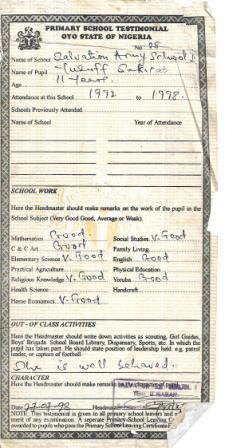 PRIMARY SCHOOL TESTIMONIAL
OYO STATE OF NIGERIA
No 28
Name of School Salvation Army School I
Name of Pupil
Age 11 years.
Attendance at this School 1992 to 1998
Schools Previously Attended
Name of School Year of Attendance
SCHOOL WORK
Here the Headmaster should make remarks on the work of the pupil in the
School Subject (Very Good Good, Average or Weak).
Mathematics Good Social Studies V. Good
C & C Art Good Family Living
Elementary Science V. Good English Good
Practical Agriculture Physical Education
Religious Knowledge V. Good Yoruba Good
Health Science Handicraft
Home Economics V. Good
OUT - OF CLASS ACTIVITIES
Here the Headmaster should write down activities as scouting, Girl Guides,
Boys' Brigade, School Board Library, Dispensary, Sports, etc. In which the
pupil has taken part. He should state position of leadership held. e.g. patrol
leader, or captain of football.
She is well behaved.
CHARACTER
Here the Headmaster should make remarks
Date Headmaster
NOTE: This testimonial is given to all primary school leavers and is
merit of any examination. A seperate Primary School Leaving
awarded to pupils who pass the Primary School Leaving Certificate